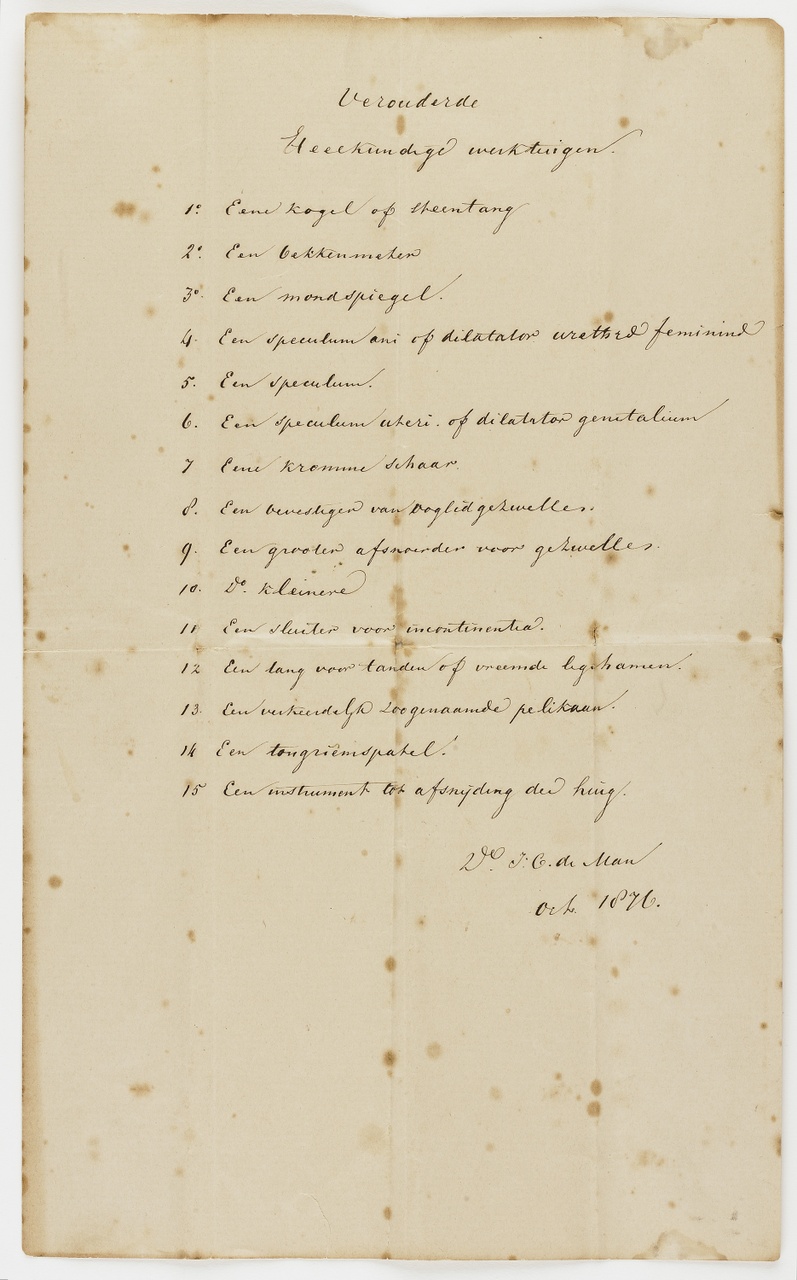 Verouderde
Heelkundige werktuigen.
1º. Eene kogel of steentang
2º. Een bekkenmeter
3º. Een mondspiegel.
4. Een speculum ani of dilatator urethrae feminine
5. Een speculum.
6. Een speculum uteri. of dilatator genitalium
7 Eene kromme schaar.
8. Een bevestiger van ooglidgezwellen.
9. Een grooter afsnoerder voor gezwellen.
10. Dº. kleinere
11 Een sluiter voor incontinentia.
12 Een tang voor tanden of vreemde ligchamen.
13. Een verkeerdelijk zoogenaamde pelikaan.
14 Een tongriemspatel.
15 Een instrument tot afsnijding der huig.
Dr. J. C. de Man
Oct. 1876.